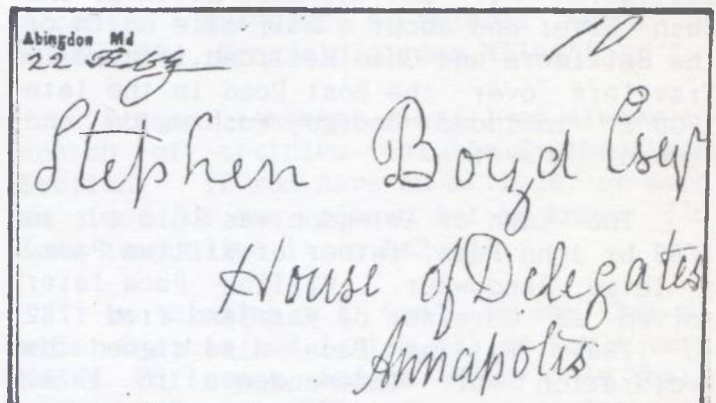 Abingdon Md
22
Stephen Boyd Esqr
House of Delegates
Annapolis